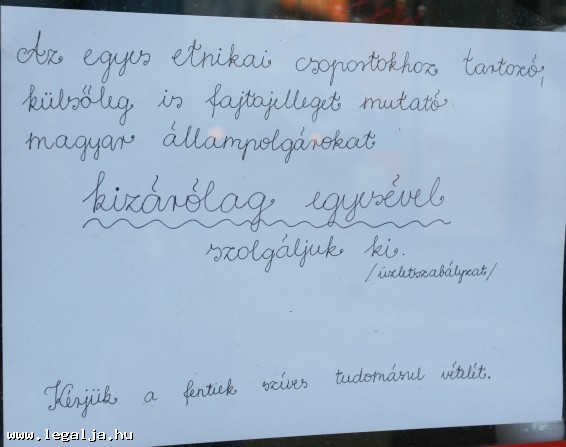 Az egyes etnikai csoportokhoz tartozó,
külsőleg is fajtajelleget mutató
magyar állampolgárokat
kizárólag egyesével
szolgáljuk ki.
/üzletszabályzat/
Kérjük a fentiek szíves tudomásul vételét.
www.legalja.hu